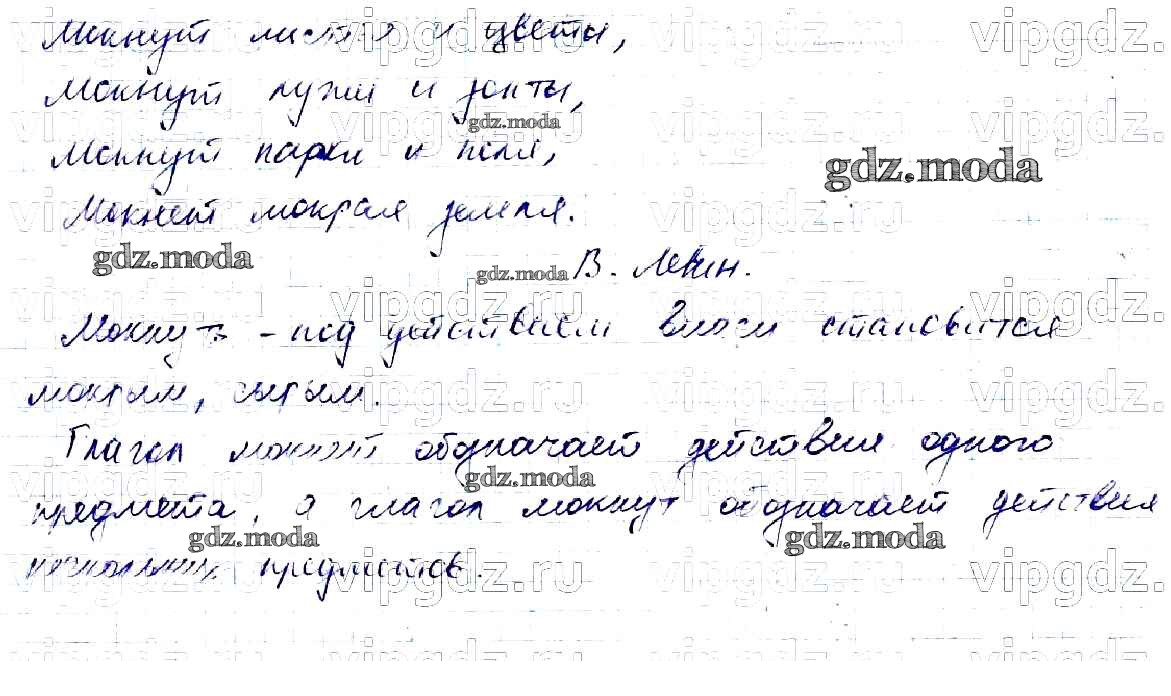 Мокнут листья и цветы,
Мокнут лужи и зонты,
Мокнут парки и поля,
Мокнет мокрая земля.
В. Левин.
Мокнуть - под действием влаги становится
мокрым, сырым.
Глагол мокнет обозначает действия одного
предмета, а глагол мокнут обозначает действия
нескольких предметов.
gdz.moda
gdz.moda
gdz.moda
gdz.moda
gdz.moda
gdz.moda
gdz.moda
vipgdz.ru